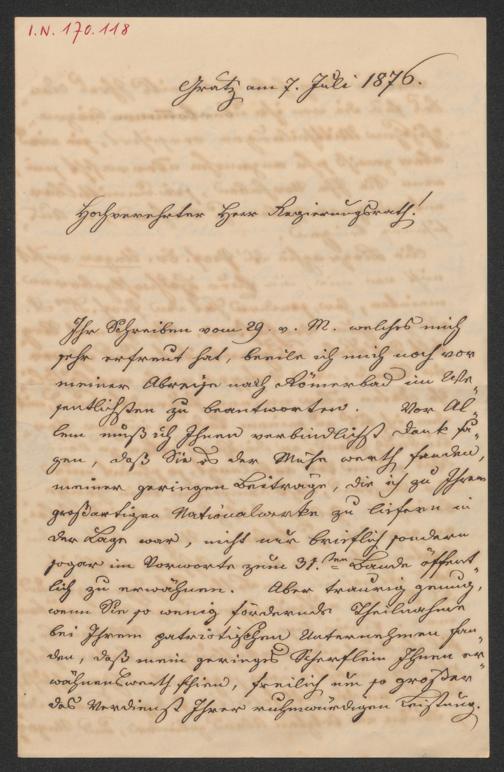 I.N. 170.118
Gratz am 7. Juli 1876.
Hochverehrter Herr Regierungsrath!
Ihr Schreiben vom 29. v. M. welches mich
sehr erfreut hat, beeile ich mich noch vor
meiner Abreise nach Römerbad im We-
sentlichsten zu beantworten. Vor Al-
lem muß ich Ihnen verbindlichst Dank sa-
gen, daß Sie es der Mühe werth fanden,
meiner geringen Beiträge, die ich zu Ihrem
großartigen Nationalwerke zu liefern in
der Lage war, nicht nur brieflich sondern
sogar im Vorworte zum 31.ten Bande öffent-
lich zu erwähnen. Aber traurig genug,
wenn Sie so wenig fördernde Theilnahme
bei Ihrem patriotischen Unternehmen fan-
den, daß mein geringes Scherflein Ihnen er-
wähnenswerth schien, freilich um so größer
das Verdienst Ihrer ruhmwürdigen Leistung.